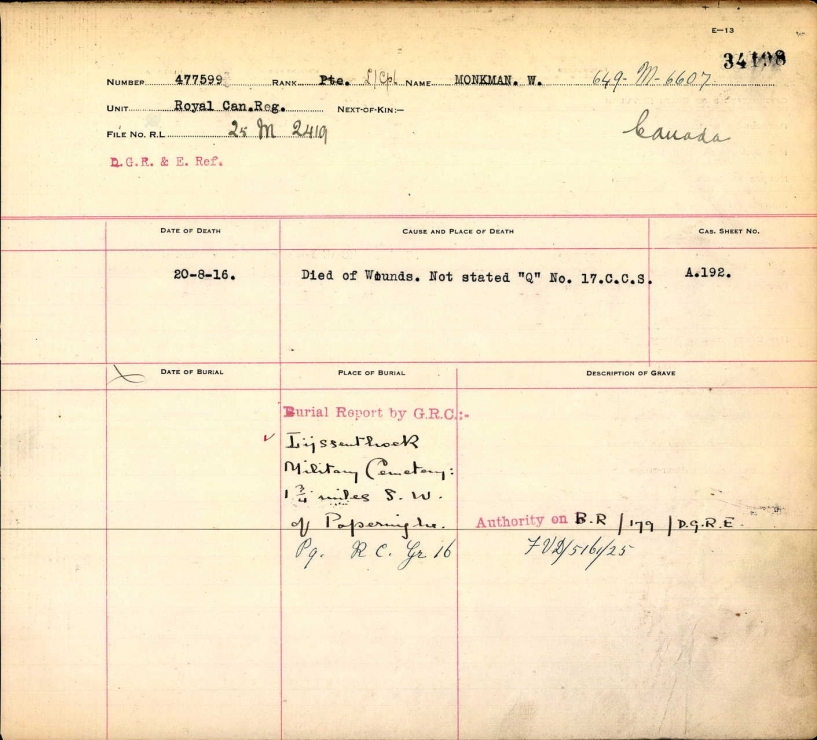 E—13
34198
NUMBER 477599 RANK Pte. L/Cpl. NAME MONKMAN. W. 649-M-6607
UNIT Royal Can.Reg. NEXT-OF-KIN:—
FILE NO. R.L. 25 M 2419
Canada
D.G.R. & E. Ref.
DATE OF DEATH CAUSE AND PLACE OF DEATH CAS. SHEET NO.
20-8-16. Died of Wounds. Not stated "Q" No. 17.C.C.S. A.192.
DATE OF BURIAL PLACE OF BURIAL DESCRIPTION OF GRAVE
Burial Report by G.R.C.:-
Lijssenthoek
Military Cemetery:
1 3/4 miles S. W.
of Poperinghe.
Authority on B.R /179 /D.G.R.E.
Pg. R C. Gr 16